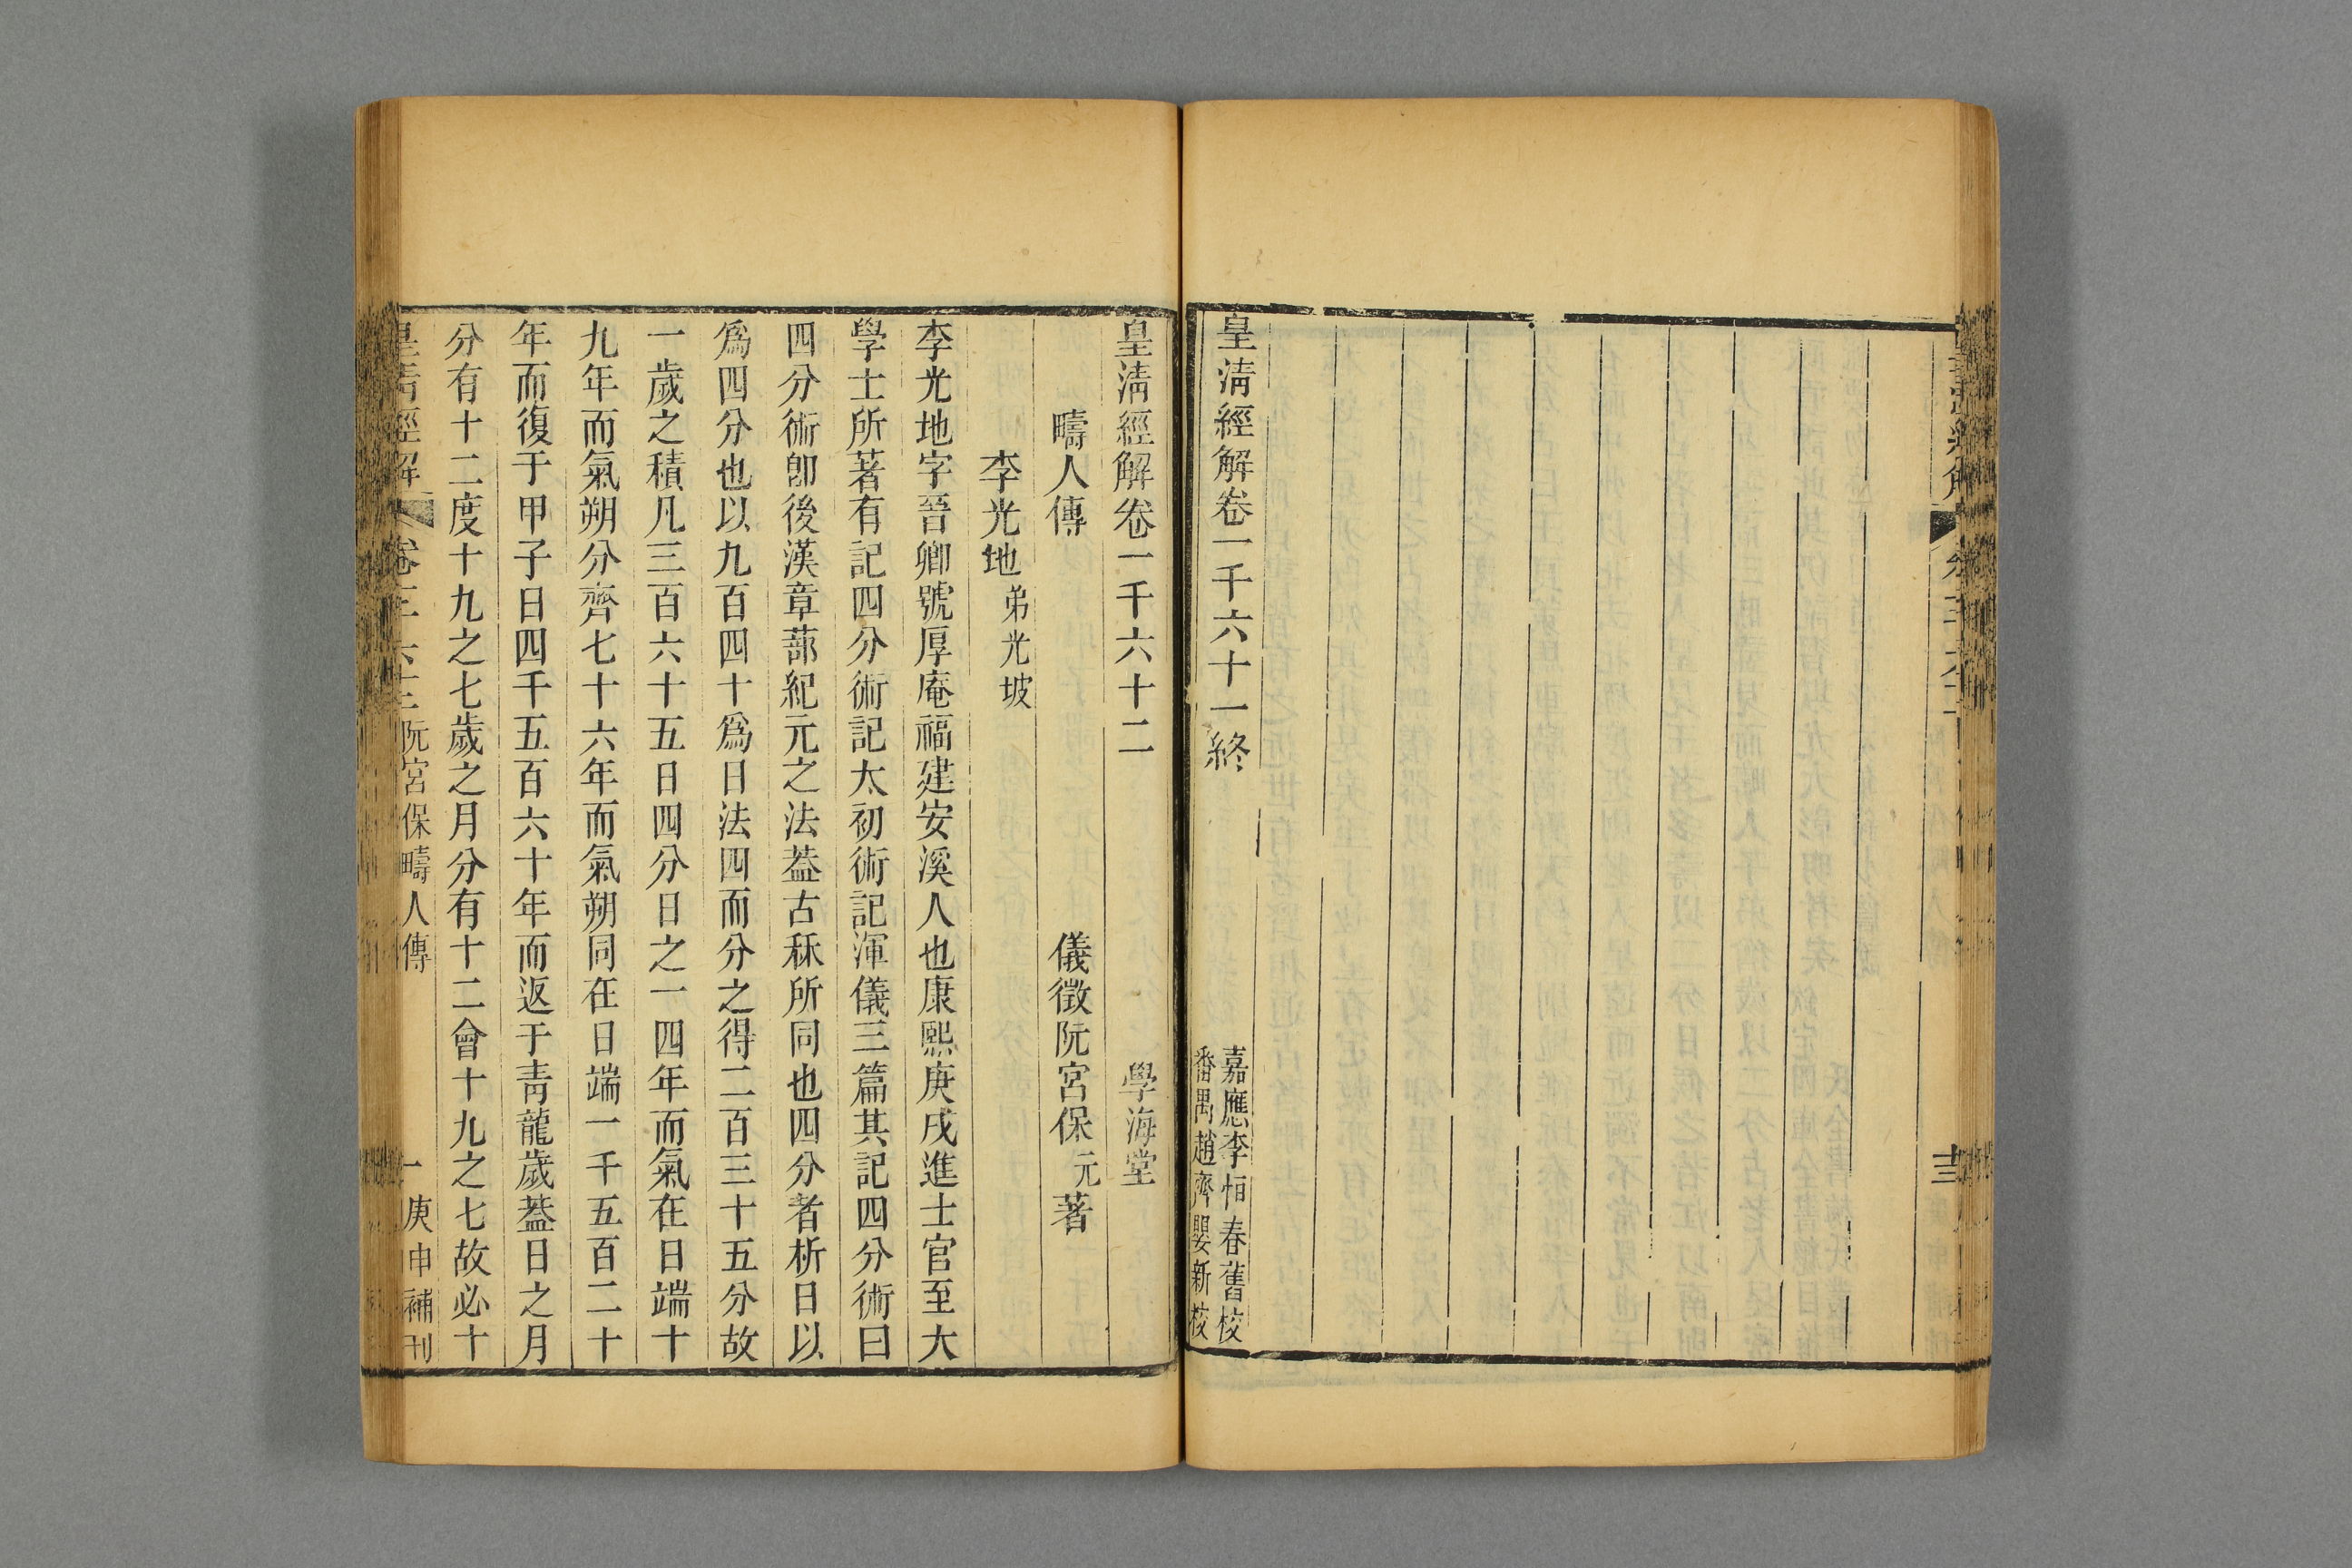 皇清經解卷一千六十一終
嘉應李恒春舊校
番禺趙齊嬰新校
皇清經解卷一千六十二
學海堂
疇人傳
儀徵阮宮保元著
李光地弟光坡
李光地字晉卿號厚庵福建安溪人也康熙庚戌進士官至大
學士所著有記四分術記太初術記渾儀三篇其記四分術曰
四分術卽後漢章蔀紀元之法葢古秝所同也四分者析日以
爲四分也以九百四十爲日法四而分之得二百三十五分故
一歲之積凡三百六十五日四分日之一四年而氣在日端十
九年而氣朔分齊七十六年而氣朔同在日端一千五百二十
年而復于甲子日四千五百六十年而返于青龍歲葢日之月
分有十二度十九之七歲之月分有十二會十九之七故必十
皇清經解 阮宮保疇人傳 一 庚申補刊